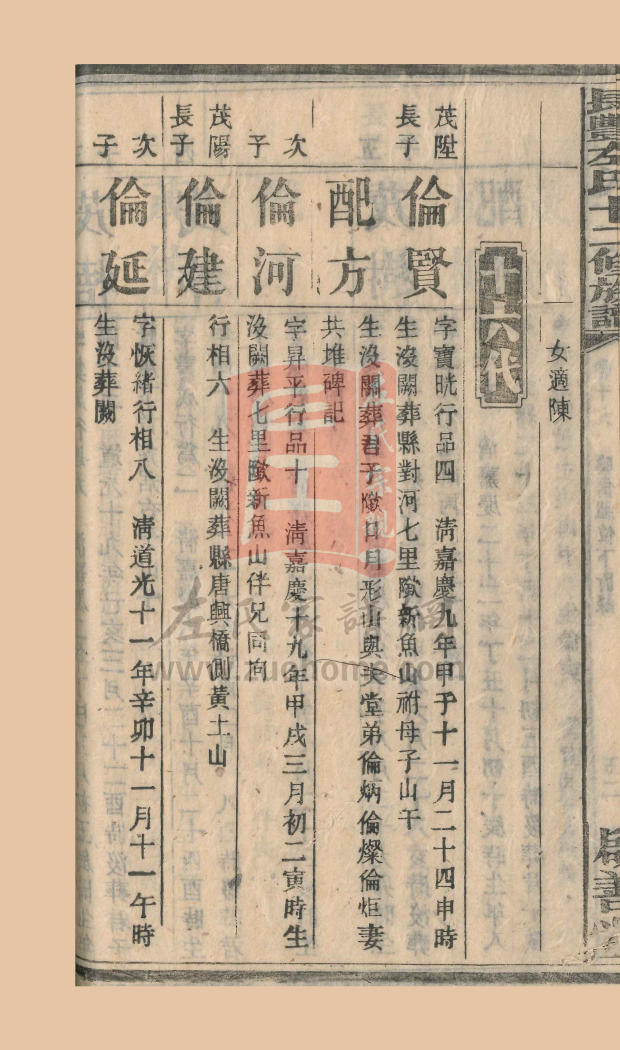 長豐左氏十二修族譜
女適陳
十六代
茂陞長子
倫賢
字寶晄行品四 清嘉慶九年甲子十一月二十四申時
生沒闕葬縣對河七里墩新魚山祔母子山午
配方
生沒闕葬君子墩日月形山與夫堂弟倫炳倫燦倫炬妻
共堆碑記
次子
倫河
字昇平行品十 清嘉慶十九年甲戌三月初二寅時生
沒闕葬七里墩新魚山伴兄同向
茂陽長子
倫建
行相六 生沒闕葬縣唐興橋側黃土山
次子
倫延
字恢緒行相八 清道光十一年辛卯十一月十一午時
生沒葬闕
左氏家譜網
www.zuohome.com